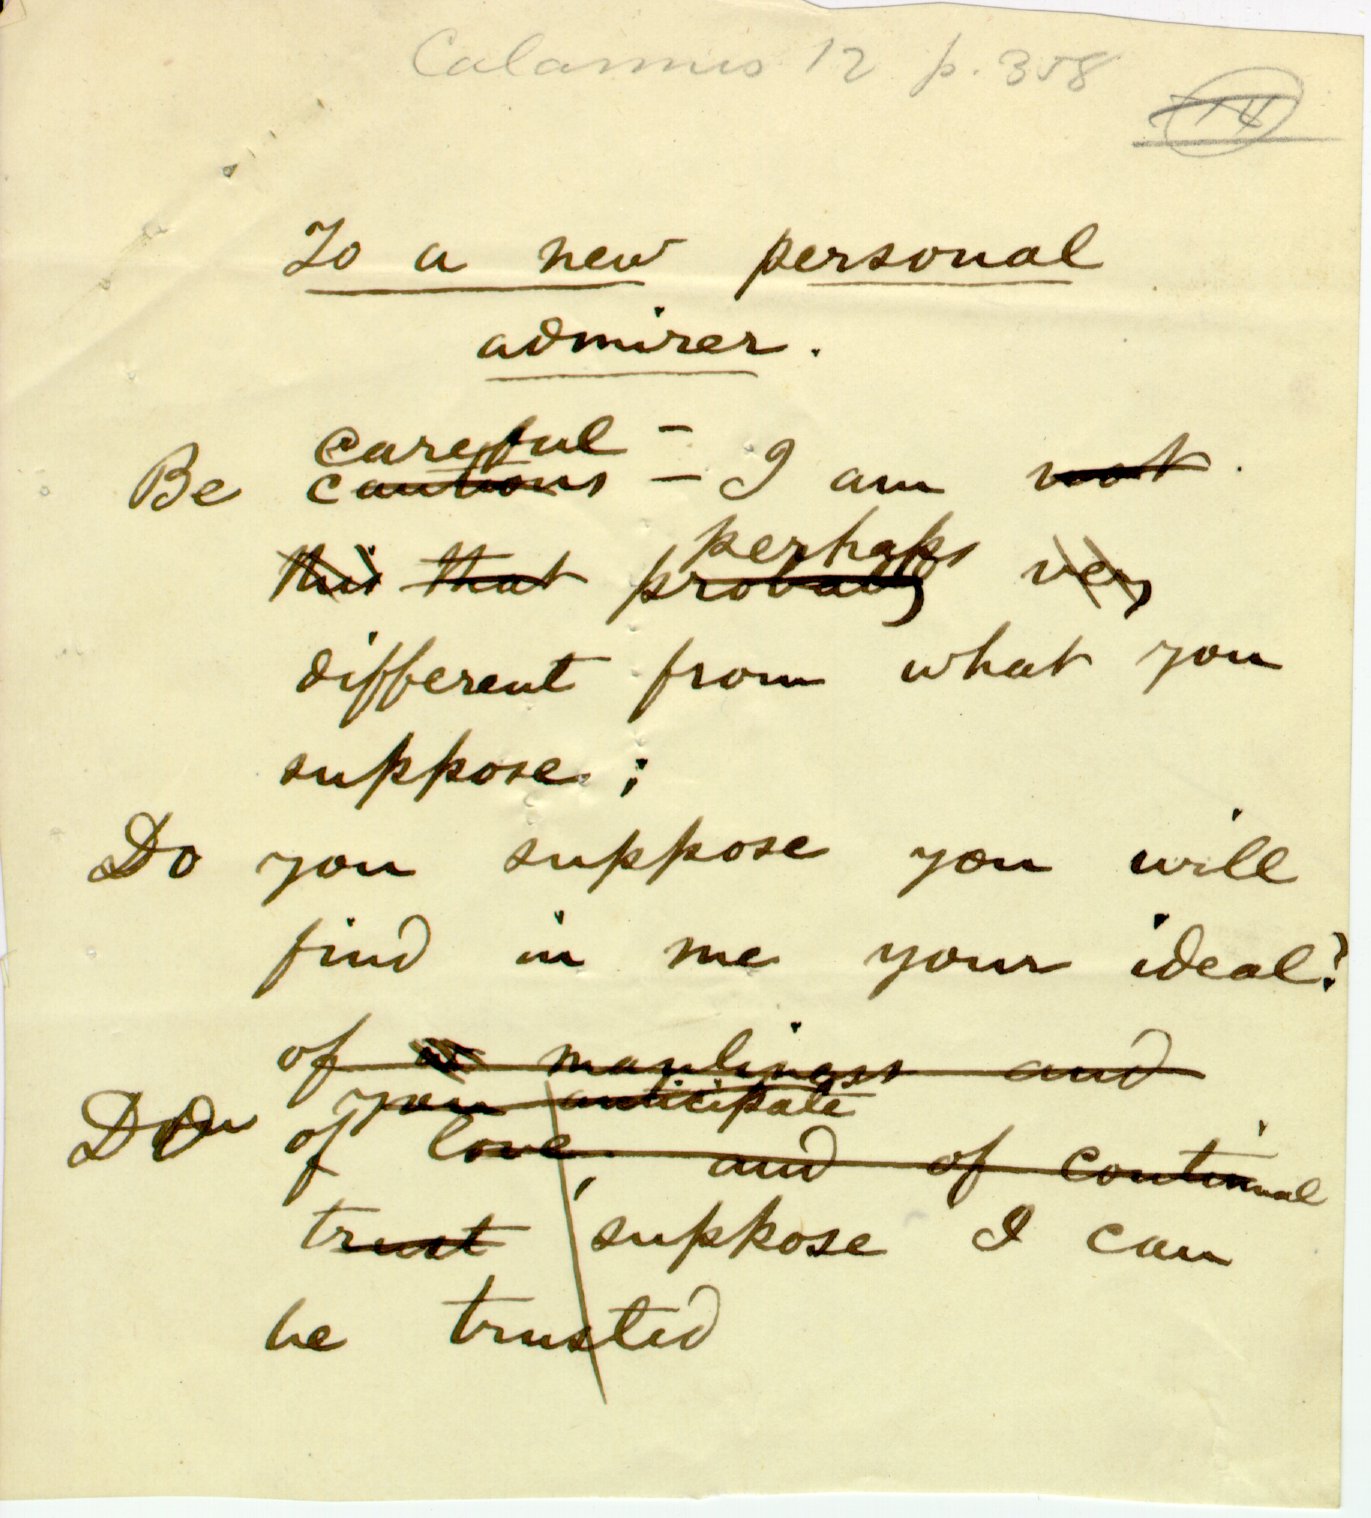 Calamus 12 p. 358
To a new personal
admirer.
careful –
Be cautious – I am not
perhaps
this that probably very
different from what you
suppose ;
Do you suppose you will
find in me your ideal?
of manliness and
you anticipate
Do of love, and of continual
trust suppose I can
be trusted